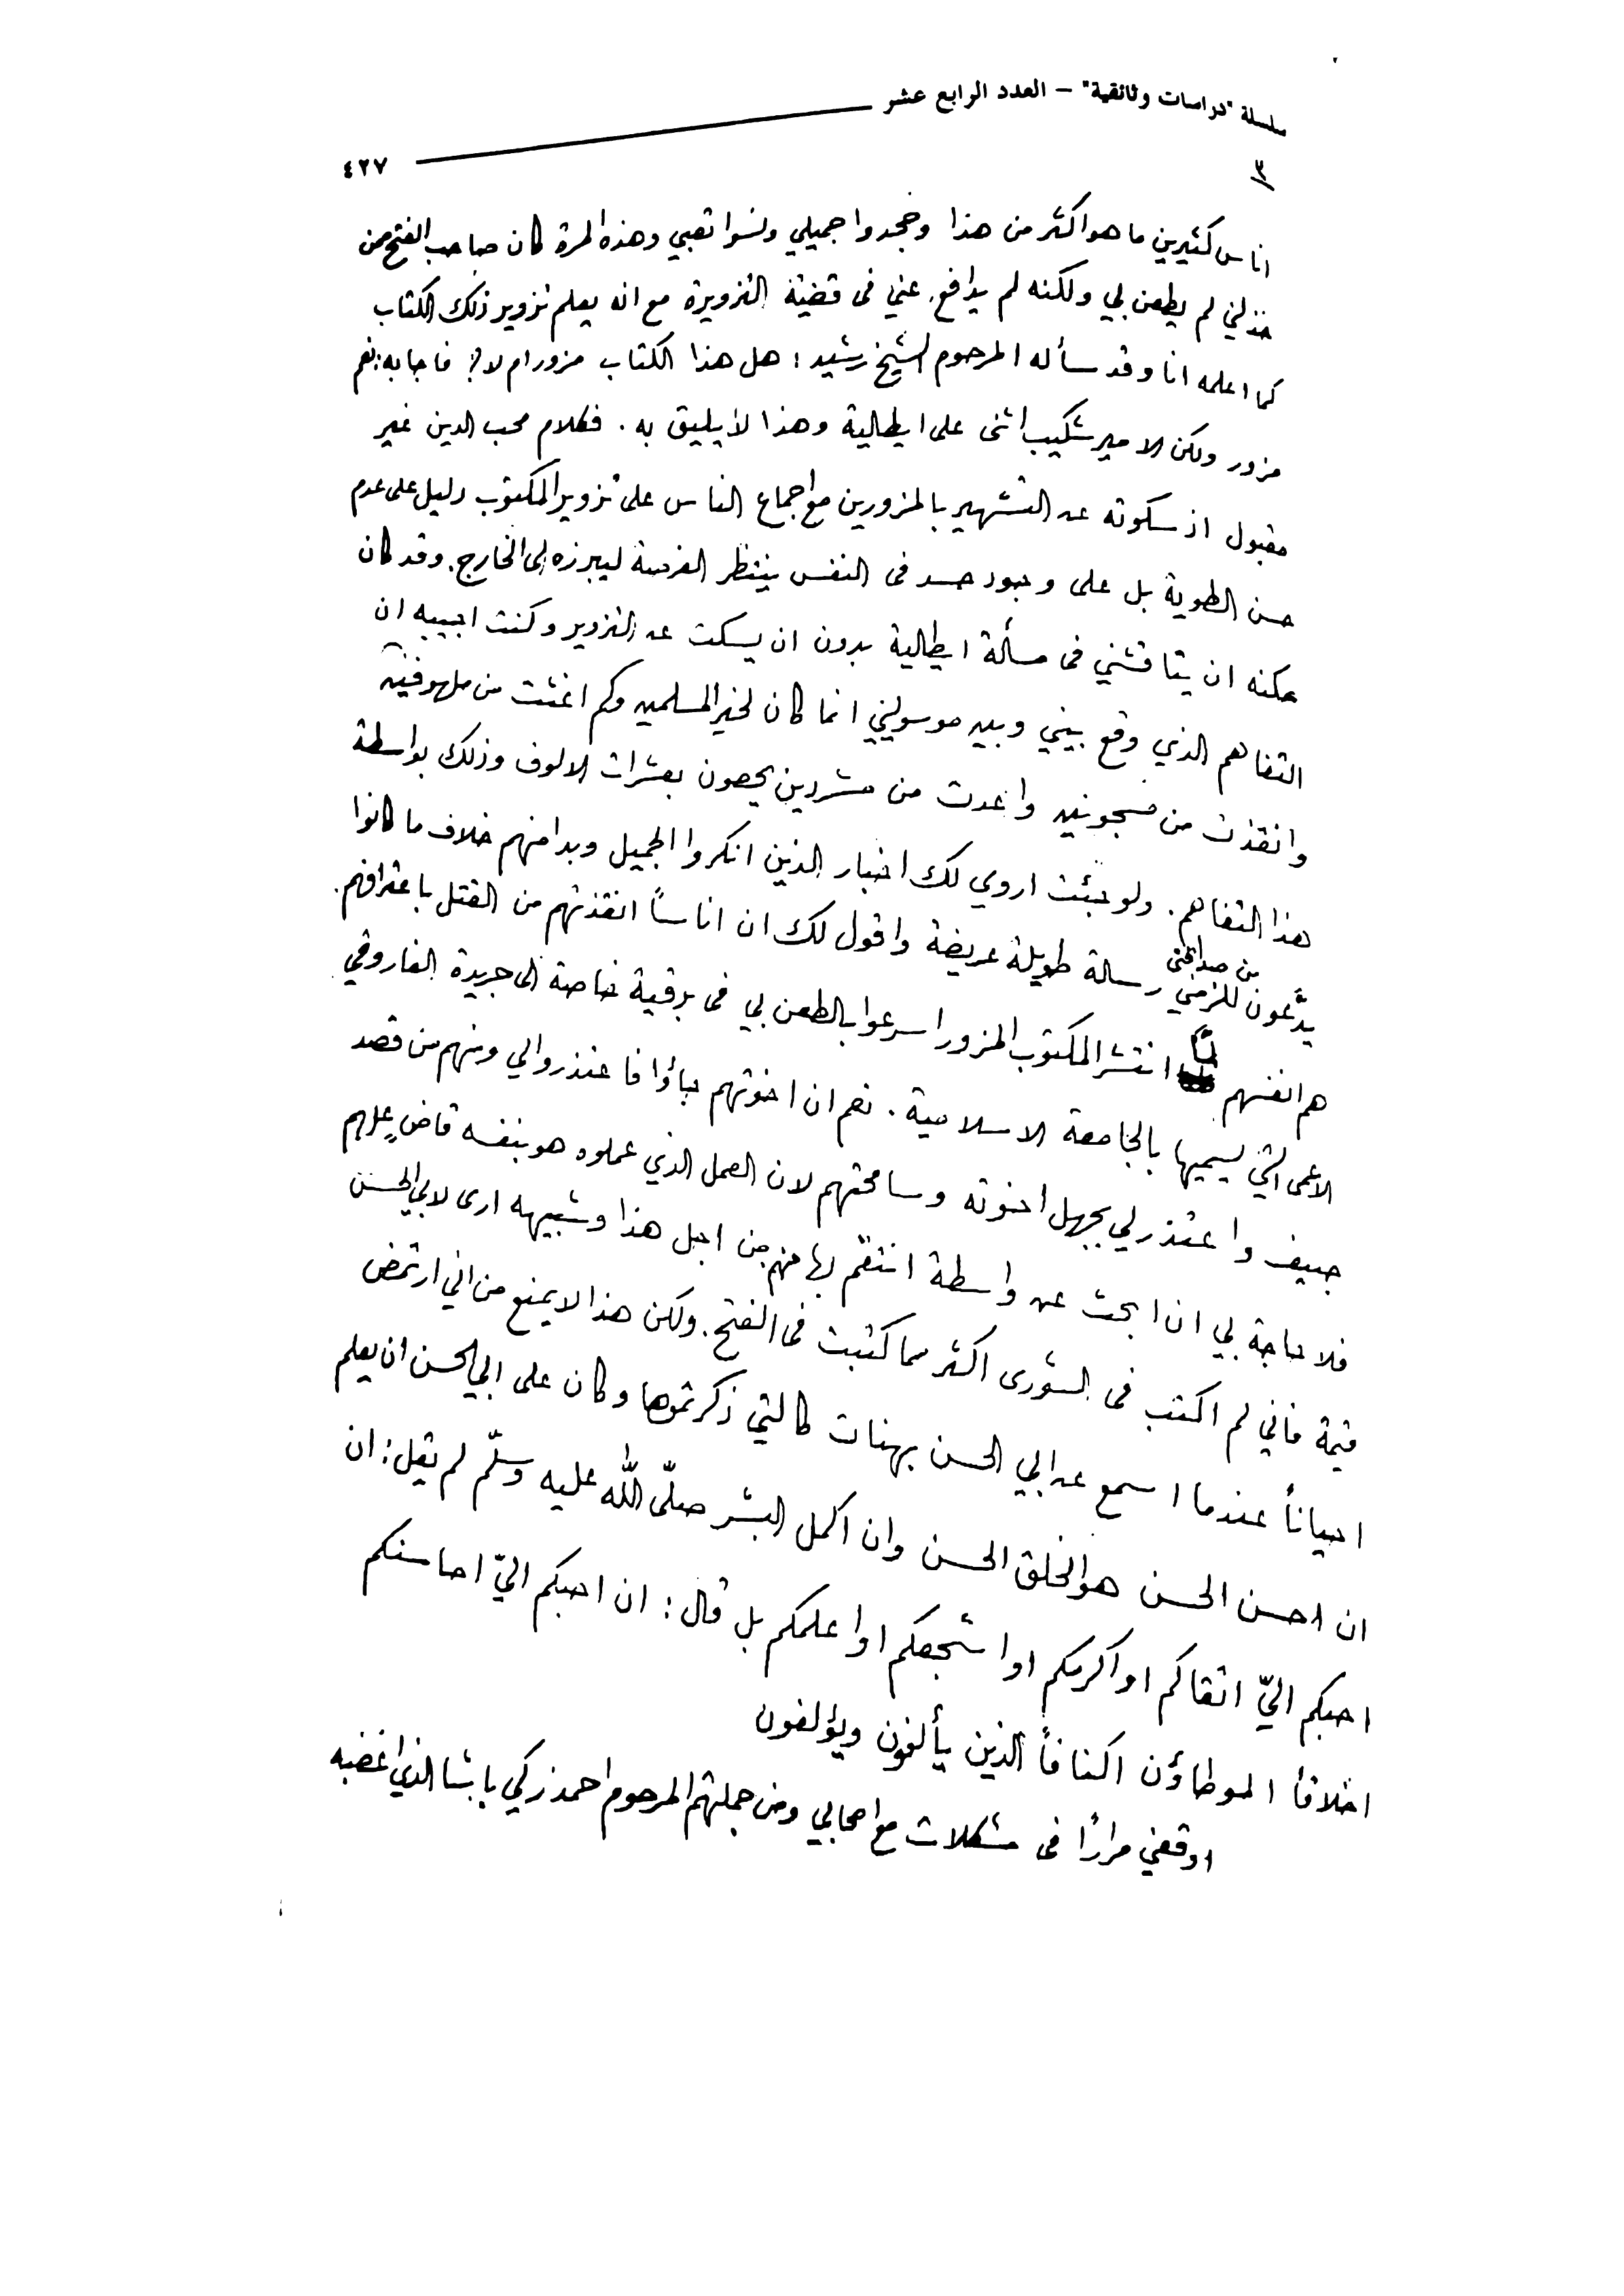 سلسلة "دراسات وثائقية" – العدد الرابع عشر
٤٢٧
٣
اناس كثيرين ما هو اكثر من هذا وجحدوا جميلي ونسوا تعبي وهذه المرة كان صاحب الفتح ممن
خذلني لم يطعن بي ولكنه لم يدافع عني فى قضية التزويرة مع انه يعلم تزوير ذلك الكتاب
كما اعلمه انا وقد سأله المرحوم الشيخ رشيد : هل هذا الكتاب مزور ام لا ؟ فاجابه : نعم
مزور ولكن الامير شكيب اثنى على ايطالية وهذا لا يليق به . فكلام محب الدين غير
مقبول اذ سكوته عن التشهير بالمزورين مع اجماع الناس على تزوير المكتوب دليل على عدم
حسن الطوية بل على وجود حسد فى النفس ينتظر الفرصة ليبرزه الى الخارج . وقد كان
يمكنه ان يناقشني فى مسألة ايطالية بدون ان يسكت عن التزوير وكنت اجيبه ان
التفاهم الذي وقع بيني وبين موسوليني انما كان لخير المسلمين وكم اغثت من ملهوفين
وانقذت من مسجونين واعدت من مشردين يحصون بعشرات الالوف وذلك بواسطة
هذا التفاهم . ولو جئت اروي لك اخبار الذين انكروا الجميل وبدا منهم خلاف ما كانوا
يدّعون للزمني رسالة طويلة عريضة واقول لك ان اناساً انقذتهم من القتل باعترافهم
من صداقتي
هم انفسهم لمّا انتشر المكتوب المزور اسرعوا بالطعن بي فى برقية خاصة الى جريدة الفاروقي
الاعمى التي يسميها بالجامعة الاسلامية . نعم ان اخوتهم جاؤا فاعتذروا الي ومنهم من قصد
جنيف واعتذر لي بجهل اخوته وسامحتهم لان العمل الذي عملوه هو بنفسه قاضٍ عليهم
فلا حاجة بي ان ابحث عن واسطة انتقم بها منهم من اجل هذا وشبيهه ارى لابي الحسن
قيمة فاني لم اكتب فى الشورى اكثر مما كتبت فى الفتح . ولكن هذا لا يمنع من اني ارتمض
احياناً عندما اسمع عن ابي الحسن بهنات كالتي ذكرتموها وكان على ابي الحسن ان يعلم
ان احسن الحسن هو الخلق الحسن وان اكمل البشر صلّى الله عليه وسلّم لم يقل : ان
احبكم اليّ اتقاكم او اكرمكم او اشجعكم او اعلمكم بل قال : ان احبكم اليّ احاسنكم
اخلاقاً الموطاؤن اكنافاً الذين يألفون ويؤلفون
اوقعني مراراً فى مشكلات مع اصحابي ومن جملتهم المرحوم احمد زكي باشا الذي اغضبه